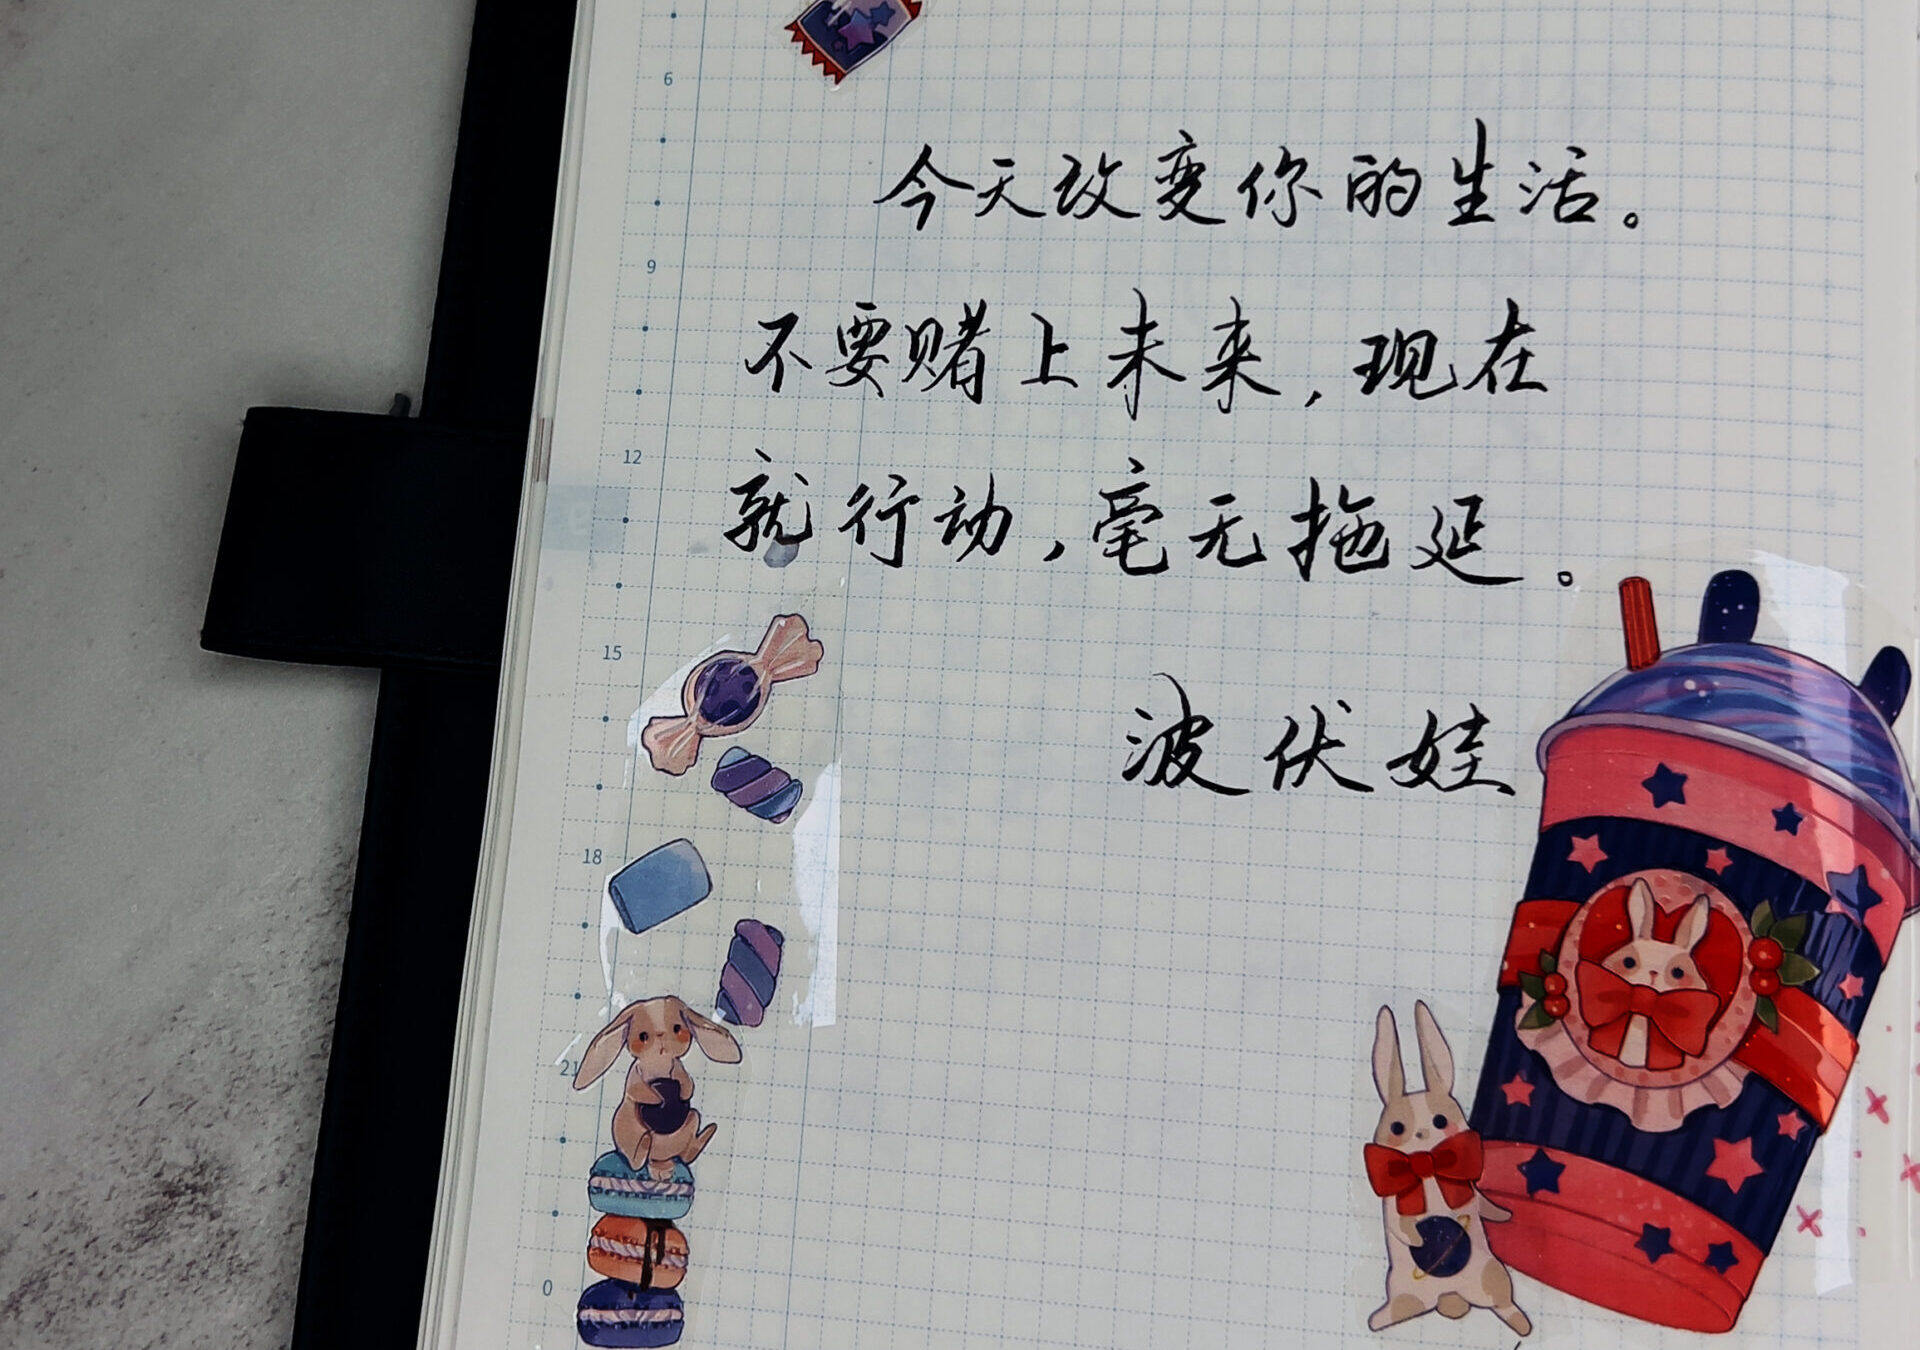 6
今天改变你的生活。
9
不要赌上未来,现在
12
就行动,毫无拖延。
15
波伏娃
18
21
0